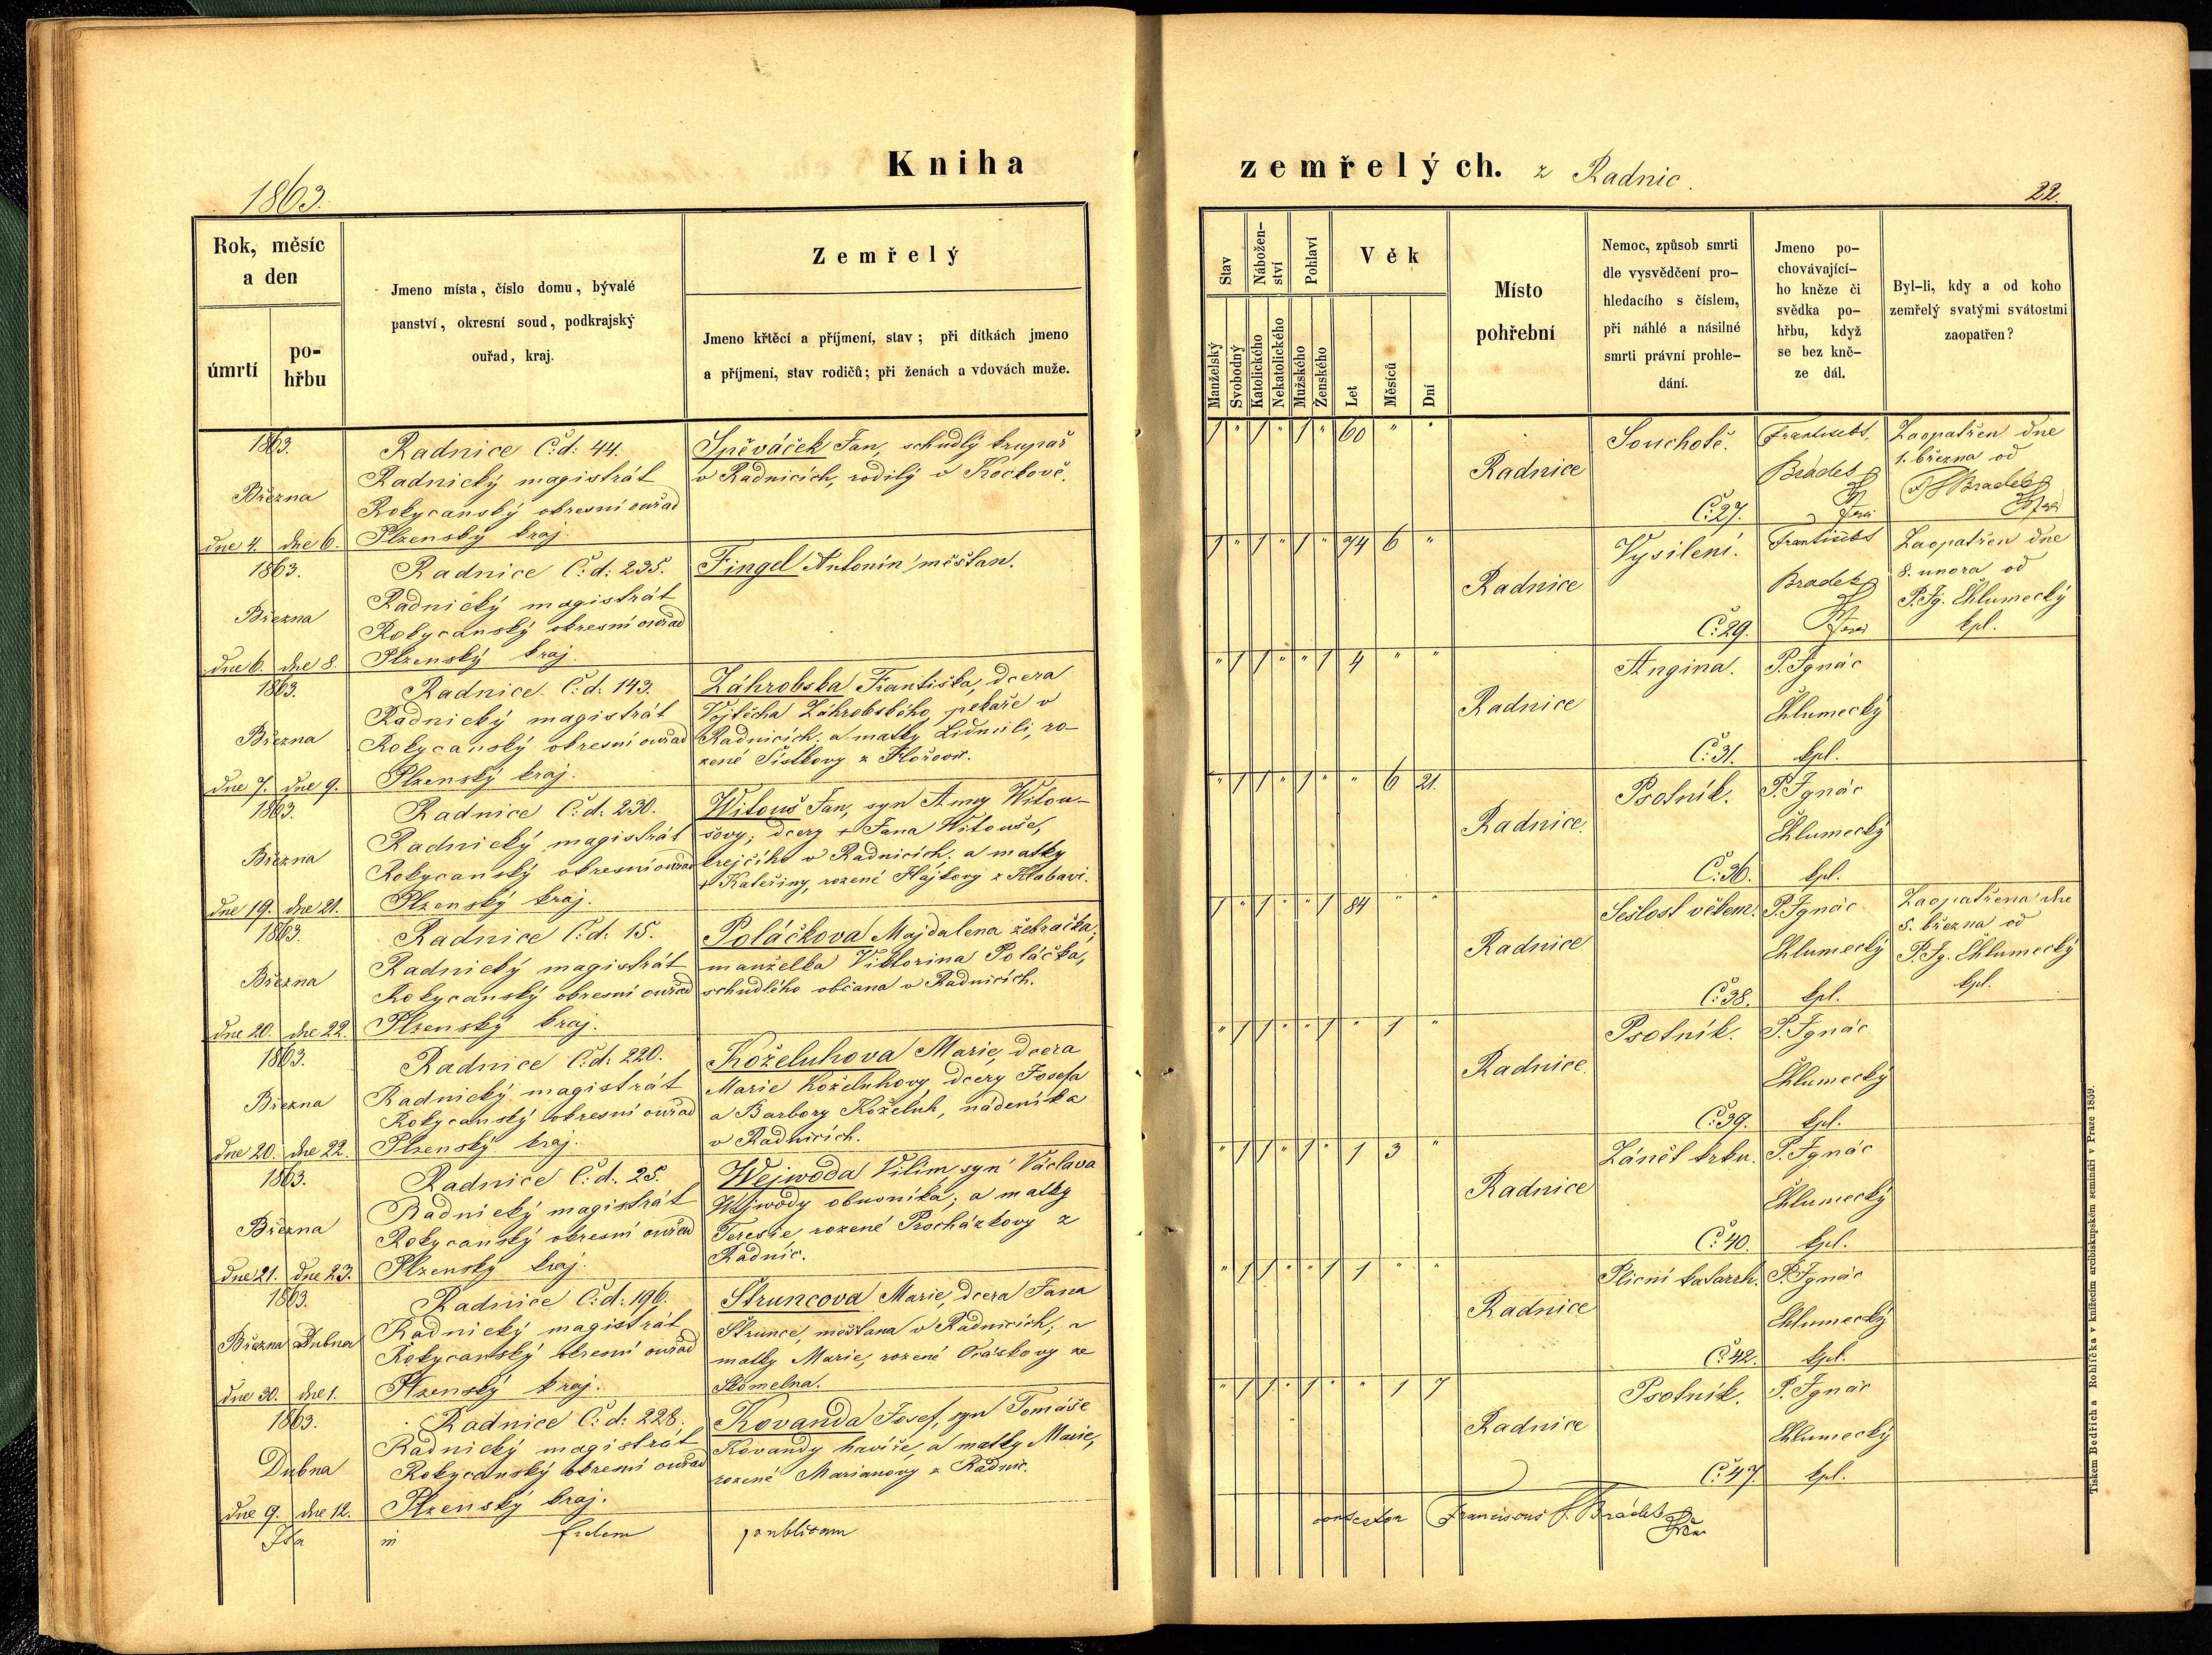 Kniha
1863.
Rok, měsíc
a den
úmrtí
po-
hřbu
Jmeno místa, číslo domu, bývalé
panství, okresní soud, podkrajský
ouřad, kraj.
Zemřelý
Jmeno křtěcí a příjmení, stav; při dítkách jmeno
a příjmení, stav rodičů; při ženách a vdovách muže.
1863.
Března
dne 4. dne 6.
Radnice Č: d: 44.
Radnický magistrát
Rokycanský okresní ouřad
Plzenský kraj.
Spěváček Jan, schudlý krupař
v Radnicích, rodilý v
1863.
Března
dne 6. dne 8.
Radnice Č: d: 235.
Radnický magistrát
Rokycanský okresní ouřad
Plzenský kraj.
Fingel Antonín, měšťan.
1863.
Března
dne 7. dne 9.
Radnice Č: d: 143.
Radnický magistrát
Rokycanský okresní ouřad
Plzenský kraj.
Záhrobska Františka, dcera
Vojtěcha Záhrobského, pekaře v
Radnicích; a matky Lidmili, ro-
zené Šístkovy z Hořovic.
1863.
Března
dne 19. dne 21.
Radnice Č: d. 230.
Radnický magistrát
Rokycanský okresní ouřad
Plzenský kraj.
Witouš Jan, syn Anny Witou-
šovy; dcery + Jana Witouše,
krejčího v Radnicích; a matky
+ Kateřiny, rozené Hájkovy z Klabavi.
1863.
Března
dne 20. dne 22.
Radnice Č: d: 15.
Radnický magistrát
Rokycanský okresní ouřad
Plzenský kraj.
Poláčkova Majdalena žebračka;
manželka Viktorina Poláčka,
schudlého občana v Radnicích.
1863.
Března
dne 20. dne 22.
Radnice Č: d: 220.
Radnický magistrát
Rokycanský okresní ouřad
Plzenský kraj.
Koželuhova Marie, dcera
Marie Koželuhovy, dcery Josefa
a Barbory Koželuh, nádeníka
v Radnicích.
1863.
Března
dne 21. dne 23.
Radnice Č: d. 25.
Radnický magistrát
Rokycanský okresní ouřad
Plzenský kraj.
Wejwoda Vilím, syn Václava
Wejwody obuvníka; a matky
Teresie, rozené Procházkovy z
Radnic.
1863.
Března Dubna
dne 30. dne 1.
Radnice Č: d: 196.
Radnický magistrát
Rokycanský okresní ouřad
Plzenský kraj.
Štruncova Marie, dcera Jana
Štrunce, měšťana v Radnicích; a
matky Marie, rozené Ocáskovy ze
Skomelna.
1863.
Dubna
dne 9. dne 12.
Radnice Č: d: 228.
Radnický magistrát
Rokycanský okresní ouřad
Plzenský kraj.
Kovanda Josef, syn Tomáše
Kovandy havíře, a matky Marie,
rozené Marianovy z Radnic.
Ita in fidem publicam
zemřelých. z Radnic.
22.
Stav
Nábožen-
ství
Pohlaví
Věk
Manželský
Svobodný
Katolického
Nekatolického
Mužského
Ženského
Let
Měsíců
Dní
Místo
pohřební
Nemoc, způsob smrti
dle vysvědčení pro-
hledacího s číslem,
při náhlé a násilné
smrti právní prohle-
dání.
Jmeno po-
chovávající-
ho kněze či
svědka po-
hřbu, když
se bez kně-
ze dál.
Byl-li, kdy a od koho
zemřelý svatými svátostmi
zaopatřen?
1 " 1 " 1 " 60 " "
Radnice
Souchotě.
Č: 27.
František
Bradek
Zaopatřen dne
1. března od
F. Bradek
1 " 1 " 1 " 74 6 "
Radnice
Vysílení.
Č: 29.
František
Bradek
Zaopatřen dne
8. unora od
P. Ig. Chlumecký
kpl.
" 1 1 " " 1 4 " "
Radnice
Angina.
Č: 31.
P. Ignác
Chlumecký
kpl.
" 1 1 " 1 " " 6 21.
Radnice.
Psotník.
Č: 36.
P. Ignác
Chlumecký
kpl.
1 " 1 " " 1 84 " "
Radnice
Sešlost věkem.
Č: 38.
P. Ignác
Chlumecký
kpl.
Zaopatřena dne
5. března od
P. Ig. Chlumecký
kpl.
" 1 1 " " 1 " 1 "
Radnice.
Psotník.
Č: 39.
P. Ignác
Chlumecký
kpl.
" 1 1 " 1 " 1 3 "
Radnice
Zánět krku.
Č: 40.
P. Ignác
Chlumecký
kpl.
" 1 1 " " 1 1 " "
Radnice
Plicní katarrh.
Č: 42.
P. Ignác
Chlumecký
kpl.
" 1 1 " 1 " " 1 7
Radnice
Psotník.
Č: 47.
P. Ignác
Chlumecký
kpl.
contestor Franciscus Bradek
Tiskem Bedřicha Rohlíčka v knížecím arcibiskupském semináři v Praze 1859.